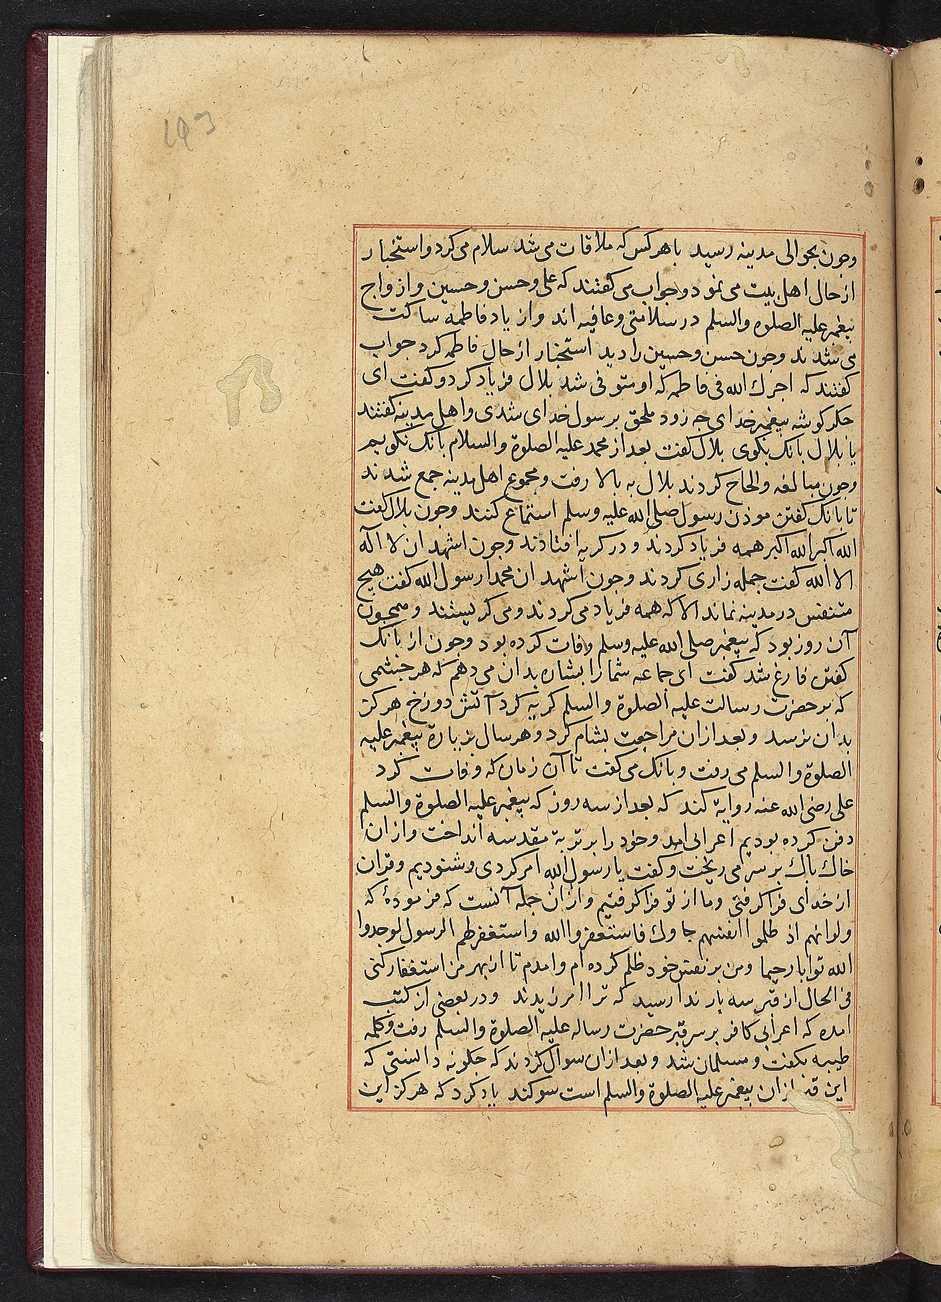 وجون بحوالی مدینه رسید باهرکس که ملاقات می شد سلام می کرد واستخبار
از حال اهل بیت می نمود وجواب می گفتند که علی وحسن وحسین وازواج
پیغمبر علیه الصلوة والسلم در سلامتی وعافیه اند واز یاد فاطمه ساکت
می شدند وجون حسن وحسین را دید استخبار از حال فاطمه کرد جواب
گفتند که اجرك الله فی فاطمه که او متوفی شد بلال فریاد کرد وکفت ای
جکر کوشه پیغمبر خدای جه زود ملحق برسول خدای شدی واهل مدینه گفتند
یا بلال بانک بکوی بلال کفت بعد از محمد علیه الصلوة والسلام بانک نکویم
وجون مبالغه والحاح کردند بلال به بالا رفت ومجموع اهل مدینه جمع شدند
تا بانک کفتن موذن رسول صلی الله علیه وسلم استماع کنند وجون بلال کفت
الله اکبر الله اکبر همه فریاد کردند ودر کریه افتادند وجون اشهد ان لا اله
الا الله کفت جمله زاری کردند وجون اشهد ان محمدا رسول الله کفت هیج
متنفس در مدینه نماند الا که همه فریاد می کردند ومی کریستند وهمجون
آن روز بود که پیغمبر صلی الله علیه وسلم وفات کرده بود وجون از بانک
کفتن فارغ شد کفت ای جماعه شما را بشاره بدان می دهم که هر جشمی
که بر حضرت رسالت علیه الصلوة والسلم کریه کرد آتش دوزخ هرکز
بدان نرسد وبعد ازان مراجعت بشام کرد وهر سال بزیارة پیغمبر علیه
الصلوة والسلم می رفت وبانک می کفت تا آن زمان که وفات کرد
علی رضی الله عنه روایة کند که بعد از سه روز که پیغمبر علیه الصلوة والسلم
دفن کرده بودیم اعرابی امد وخود را بر تربة مقدسه انداخت وازان
خاك پاك بر سر می ریخت وکفت یا رسول الله امر کردی وشنودیم وقران
از خدای فراکرفتی وما از تو فراکرفتیم وازان جمله آنست که فرموده که
ولو انهم اذ ظلموا انفسهم جاوك فاستغفروا الله واستغفر لهم الرسول لوجدوا
الله توابا رحیما ومن بر نفس خود ظلم کرده ام وامدم تا از بهر من استغفار کنی
فی الحال از قبر سه بار ندا رسید که ترا امرزیدند ودر بعضی از کتب
امده که اعرابی کافر بر سر قبر حضرت رساله علیه الصلوة والسلم رفت وکلمه
طیبه بکفت ومسلمان شد وبعد ازان سوال کردند که جکونه دانستی که
این قبر ازان پیغمبر علیه الصلوة والسلم است سوکند یاد کرد که هرکز این